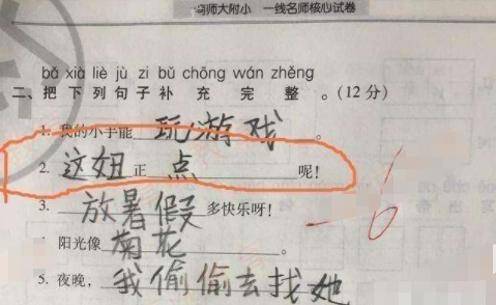 湾师大附小 一线名师核心试卷
bǎ xià liè jù zi bǔ chōng wán zhěng
二、把下列句子补充完整。(12分)
1. 我的小手能玩游戏。
2. 这妞正点呢！
3. 放暑假多快乐呀！
阳光像菊花。
5. 夜晚，我偷偷去找她
-6